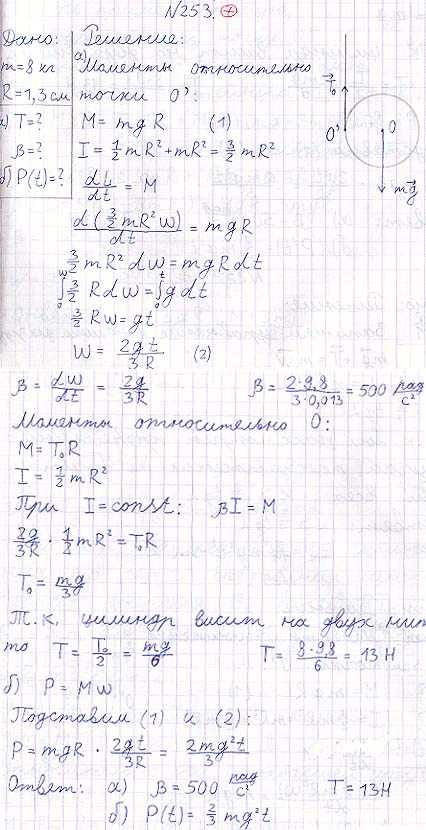 N253. +
Дано: Решение:
m=8 кг а) Моменты относительно
R=1,3 см точки O':
а) T=? M = mgR (1)
β=? I = 1/2 mR² + mR² = 3/2 mR²
б) P(t)=? dL/dt = M
d(3/2 mR²W)/dt = mgR
3/2 mR² dW = mgR dt
∫₀^W 3/2 R dW = ∫₀^t g dt
3/2 RW = gt
W = 2gt/3R (2)
T₀
O' O
mg
β = dW/dt = 2g/3R β = 2·9,8/3·0,013 = 500 рад/с²
Моменты относительно O:
M = T₀R
I = 1/2 mR²
При I = const: βI = M
2g/3R · 1/2 mR² = T₀R
T₀ = mg/3
Т.к. цилиндр висит на двух нит
то T = T₀/2 = mg/6 T = 8·9,8/6 = 13 Н
б) P = Mω
Подставим (1) и (2):
P = mgR · 2gt/3R = 2mg²t/3
Ответ: а) β = 500 рад/с² T = 13Н
б) P(t) = 2/3 mg²t